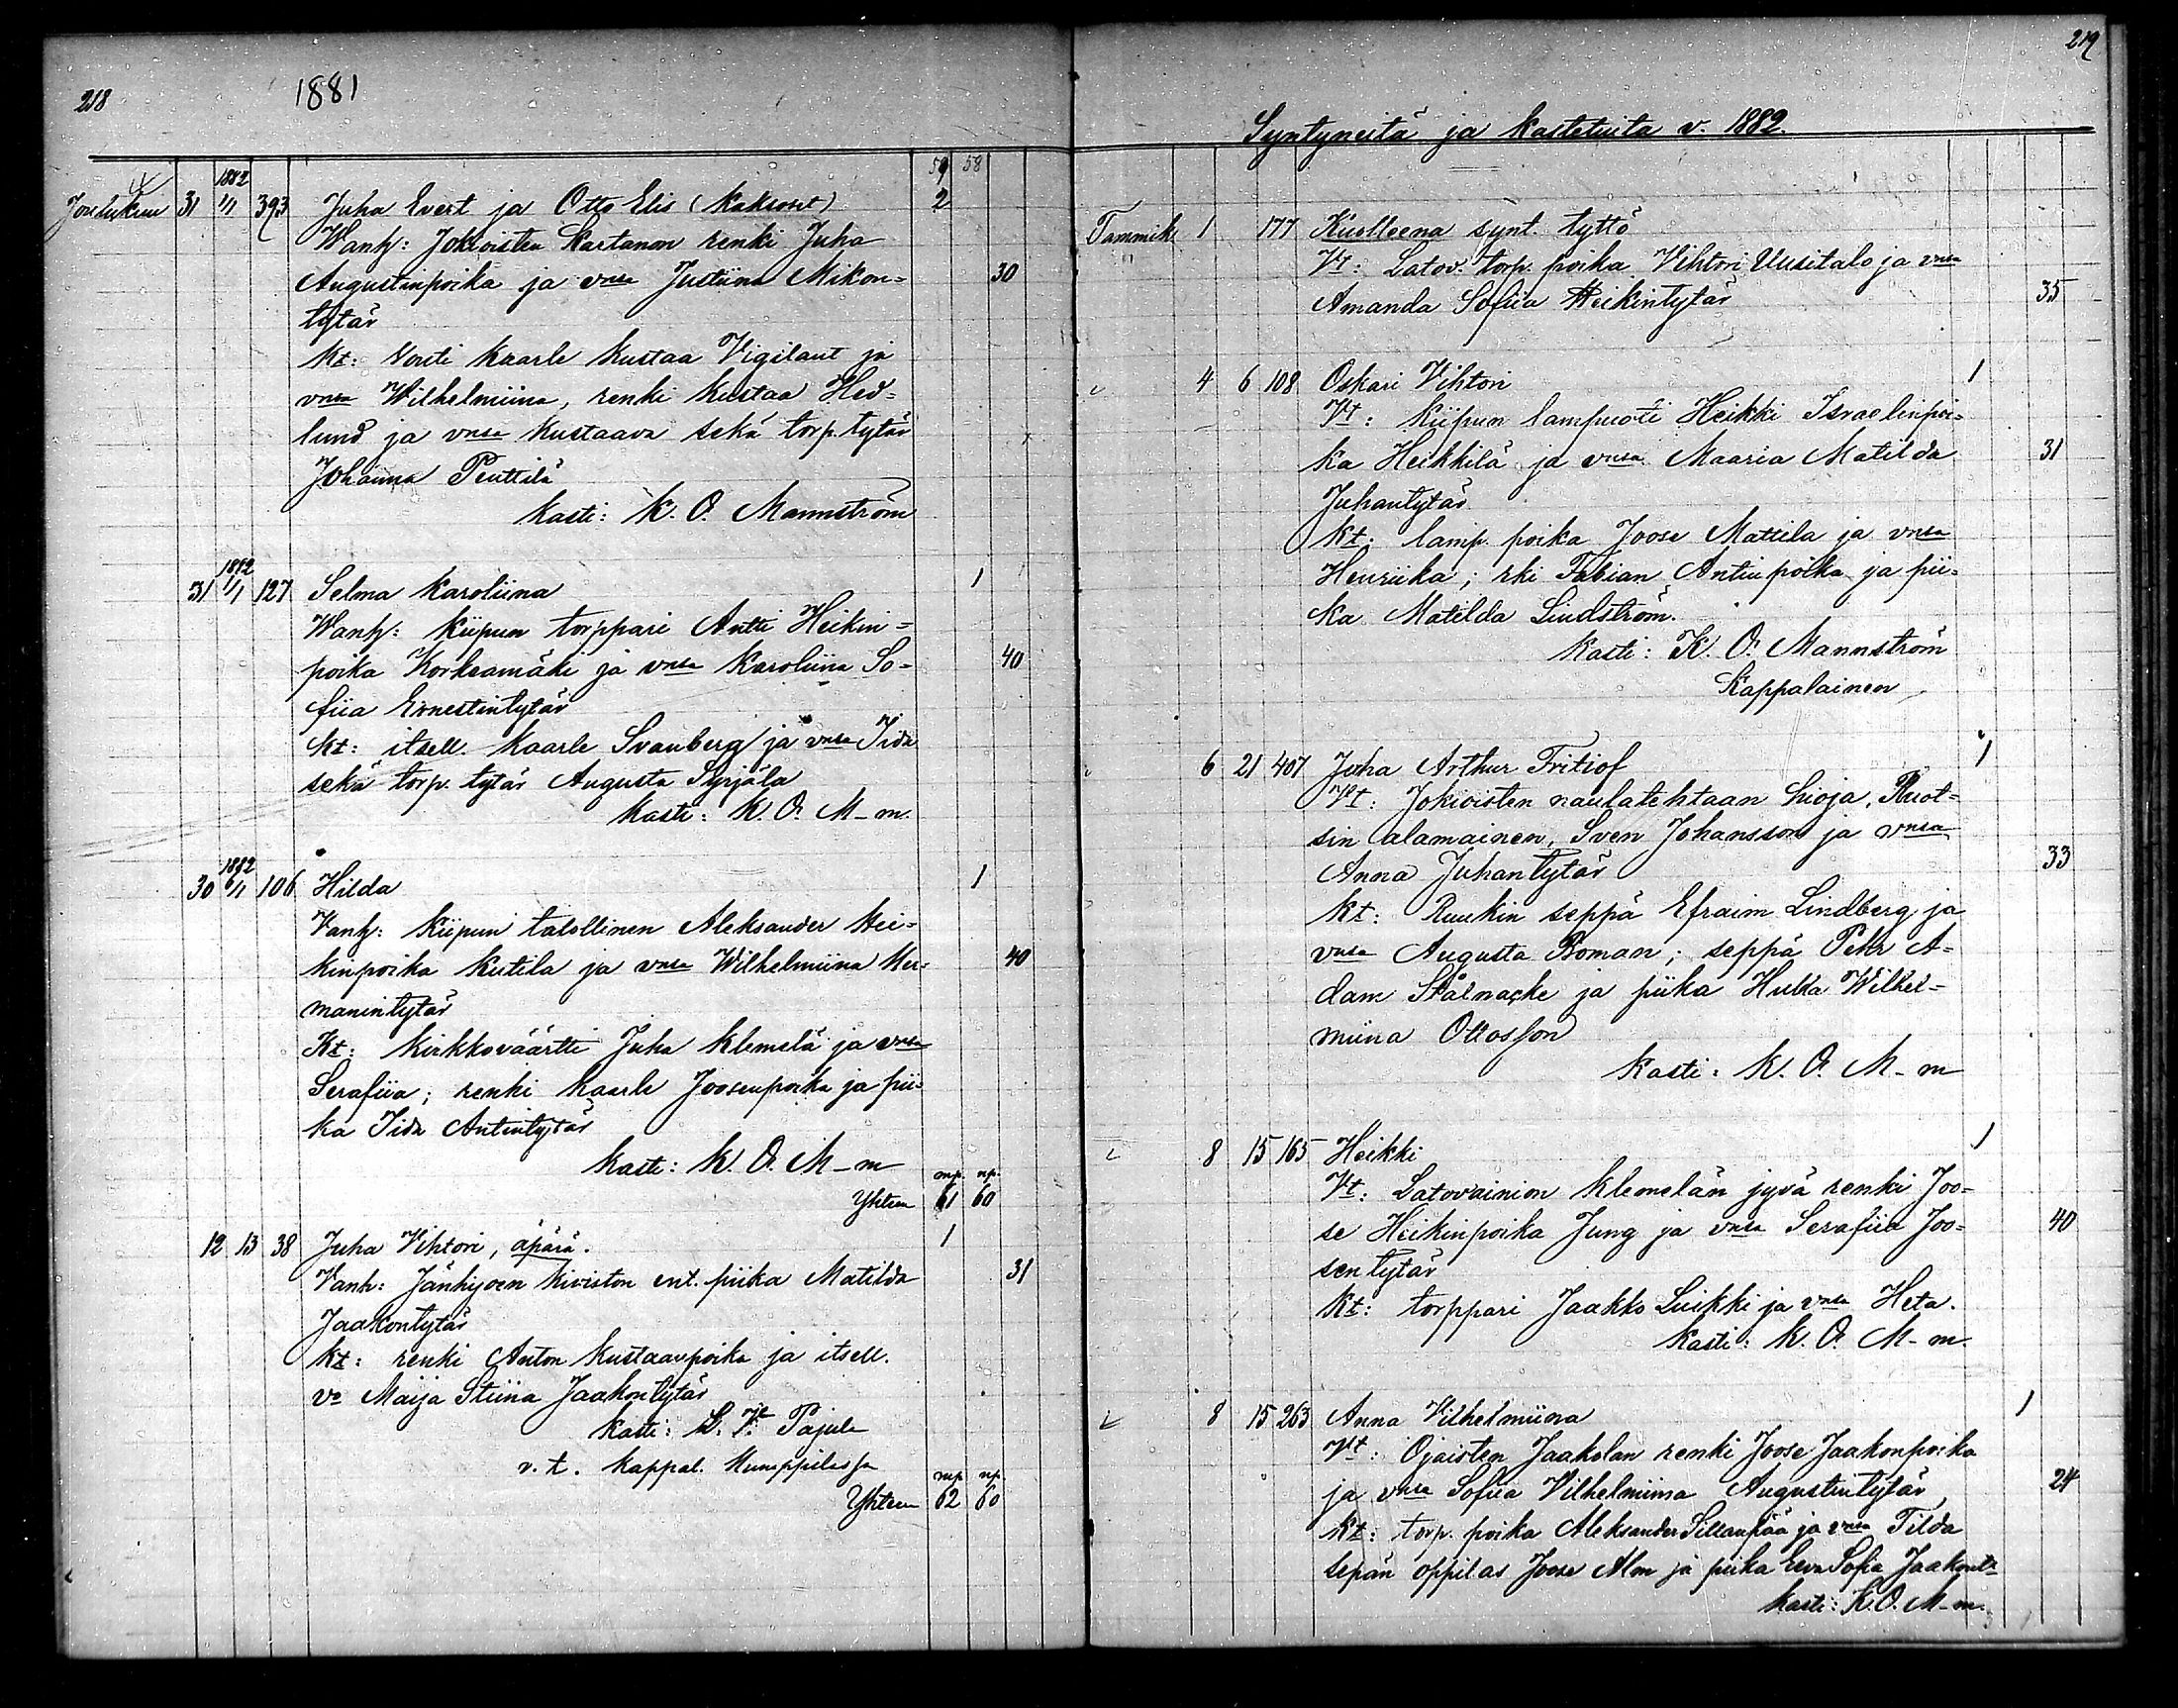 218
1881
59 58
Joulukuu 31 1882 1/1 393 Juha Evert ja Otto Elis (Kaksoset) 2
Wanh: Jokioisten Kartanon renki Juha
Augustinpoika ja vnsa Justiina Mikon= 30
tytär
Kt: Vouti Kaarle Kustaa Vigilant ja
vnsa Wilhelmiina, renki Kustaa Hed=
lund ja vnsa Kustaava sekä torp. tytär
Johanna Penttilä
Kasti: K. O. Mannström
31 1882 1/1 127 Selma Karoliina 1
Wanh: Kiipun torppari Antti Heikin=
poika Korkeamäki ja vnsa Karoliina So= 40
fiia Ernestintytär
Kt: itsell. Kaarle Svanberg ja vnsa Iida
sekä torp. tytär Augusta Syrjälä
Kasti: K. O. M-m.
30 1882 6/1 106 Hilda 1
Vanh: Kiipun talollinen Aleksander Hei=
kinpoika Kutila ja vnsa Wilhelmiina Her= 40
manintytär
Kt: Kirkkoväärtti Juha Klemelä ja vnsa
Serafiia; renki Kaarle Joosenpoika ja pii=
ka Iida Antintytär
Kasti: K. O. M-m
mp. np.
Yhteen 61 60
12 13 38 Juha Vihtori, äpärä. 1
Vanh: Jänhijoen Kiviston ent. piika Matilda 31
Jaakontytär
Kt: renki Anton Kustaanpoika ja itsell.
vo Maija Stiina Jaakontytär
Kasti: K. V. Pajula
v. t. Kappal. Humppilassa
mp. np.
Yhteen 62 60
219
Syntyneitä ja kastetuita v. 1882.
Tammik. 1 177 Kuolleena synt. tyttö
Vt: Latov. torp. poika Vihtori Uusitalo ja vnsa
Amanda Sofiia Heikintytär 35
4 6 108 Oskari Vihtori 1
Vt: Kiipun lampuoti Heikki Israelinpoi=
ka Heikkilä ja vnsa Maaria Matilda 31
Juhantytär
Kt: lamp. poika Joose Mattila ja vnsa
Henriika; rki Fabian Antinpoika ja pii=
ka Matilda Lindström.
Kasti: K. O. Mannström
Kappalainen
6 21 407 Juha Arthur Fritiof 1
Vt: Jokioisten naulatehtaan hioja, Ruot=
sin alamainen, Sven Johansson ja vnsa
Anna Juhantytär 33
Kt: Ruukin seppä Efraim Lindberg ja
vnsa Augusta Roman; seppä Pehr A=
dam Stålnacke ja piika Hulda Wilhel=
miina Ottosson
Kasti: K. O. M-m
8 15 165 Heikki 1
Vt: Latovainion Klemelän jyvä renki Joo=
se Heikinpoika Jung ja vnsa Serafiia Joo= 40
sentytär
Kt: torppari Jaakko Luikki ja vnsa Heta.
Kasti: K. O. M-m.
8 15 263 Anna Vilhelmiina 1
Vt: Ojaisten Jaakolan renki Joose Jaakonpoika
ja vnsa Sofiia Vilhelmiina Augustintytär 24
Kt: torp. poika Aleksander Sillanpää ja vnsa Tilda
sepän oppilas Joose Alm ja piika Eeva Sofia Jaakont=
Kasti: K. O. M-m.